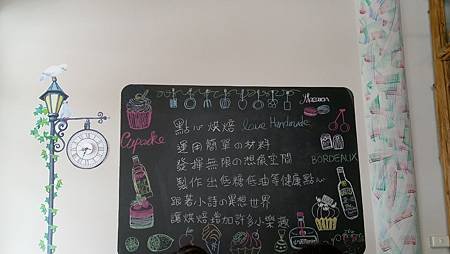 Macaron
點心烘焙 love Handmade
Cupcake
運用簡單の材料
發揮無限の想像空間
BORDEAUX
製作出低糖低油等健康點心
跟著小詩の異想世界
讓烘焙增加許多小樂趣